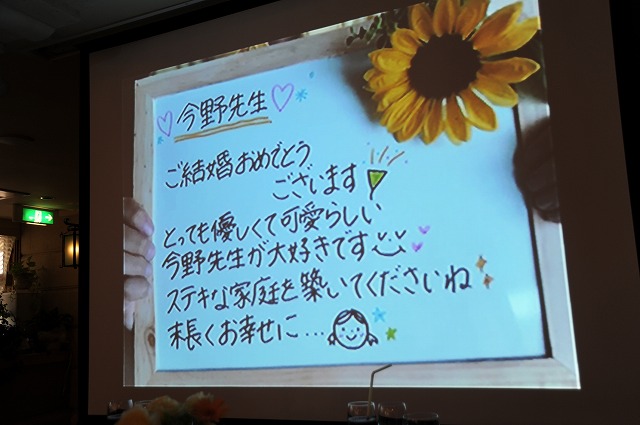 今野先生
ご結婚おめでとう
ございます
とっても優しくて可愛らしい
今野先生が大好きです
ステキな家庭を築いてくださいね
末長くお幸せに…